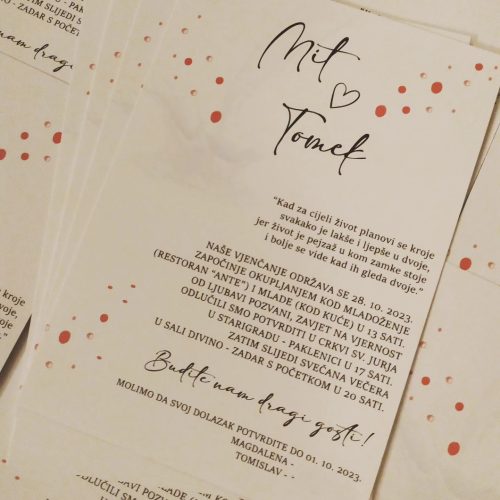 Mit
Tomek
"Kad za cijeli život planovi se kroje
svakako je lakše i ljepše u dvoje,
jer život je pejzaž u kom zamke stoje
i bolje se vide kad ih gleda dvoje."
NAŠE VJENČANJE ODRŽAVA SE 28. 10. 2023.
ZAPOČINJE OKUPLJANJEM KOD MLADOŽENJE
(RESTORAN "ANTE") I MLADE (KOD KUĆE) U 13 SATI.
OD LJUBAVI POZVANI, ZAVJET NA VJERNOST
ODLUČILI SMO POTVRDITI U CRKVI SV. JURJA
U STARIGRADU - PAKLENICI U 17 SATI.
ZATIM SLIJEDI SVEČANA VEČERA
U SALI DIVINO - ZADAR S POČETKOM U 20 SATI.
Budite nam dragi gosti!
MOLIMO DA SVOJ DOLAZAK POTVRDITE DO 01. 10. 2023.
MAGDALENA -
TOMISLAV -
U STARIGRADU - PAK
ZATIM SLIJEDI S
- ZADAR S POČET
nam dragi
kroje
dvoje,
stoje
dvoje."